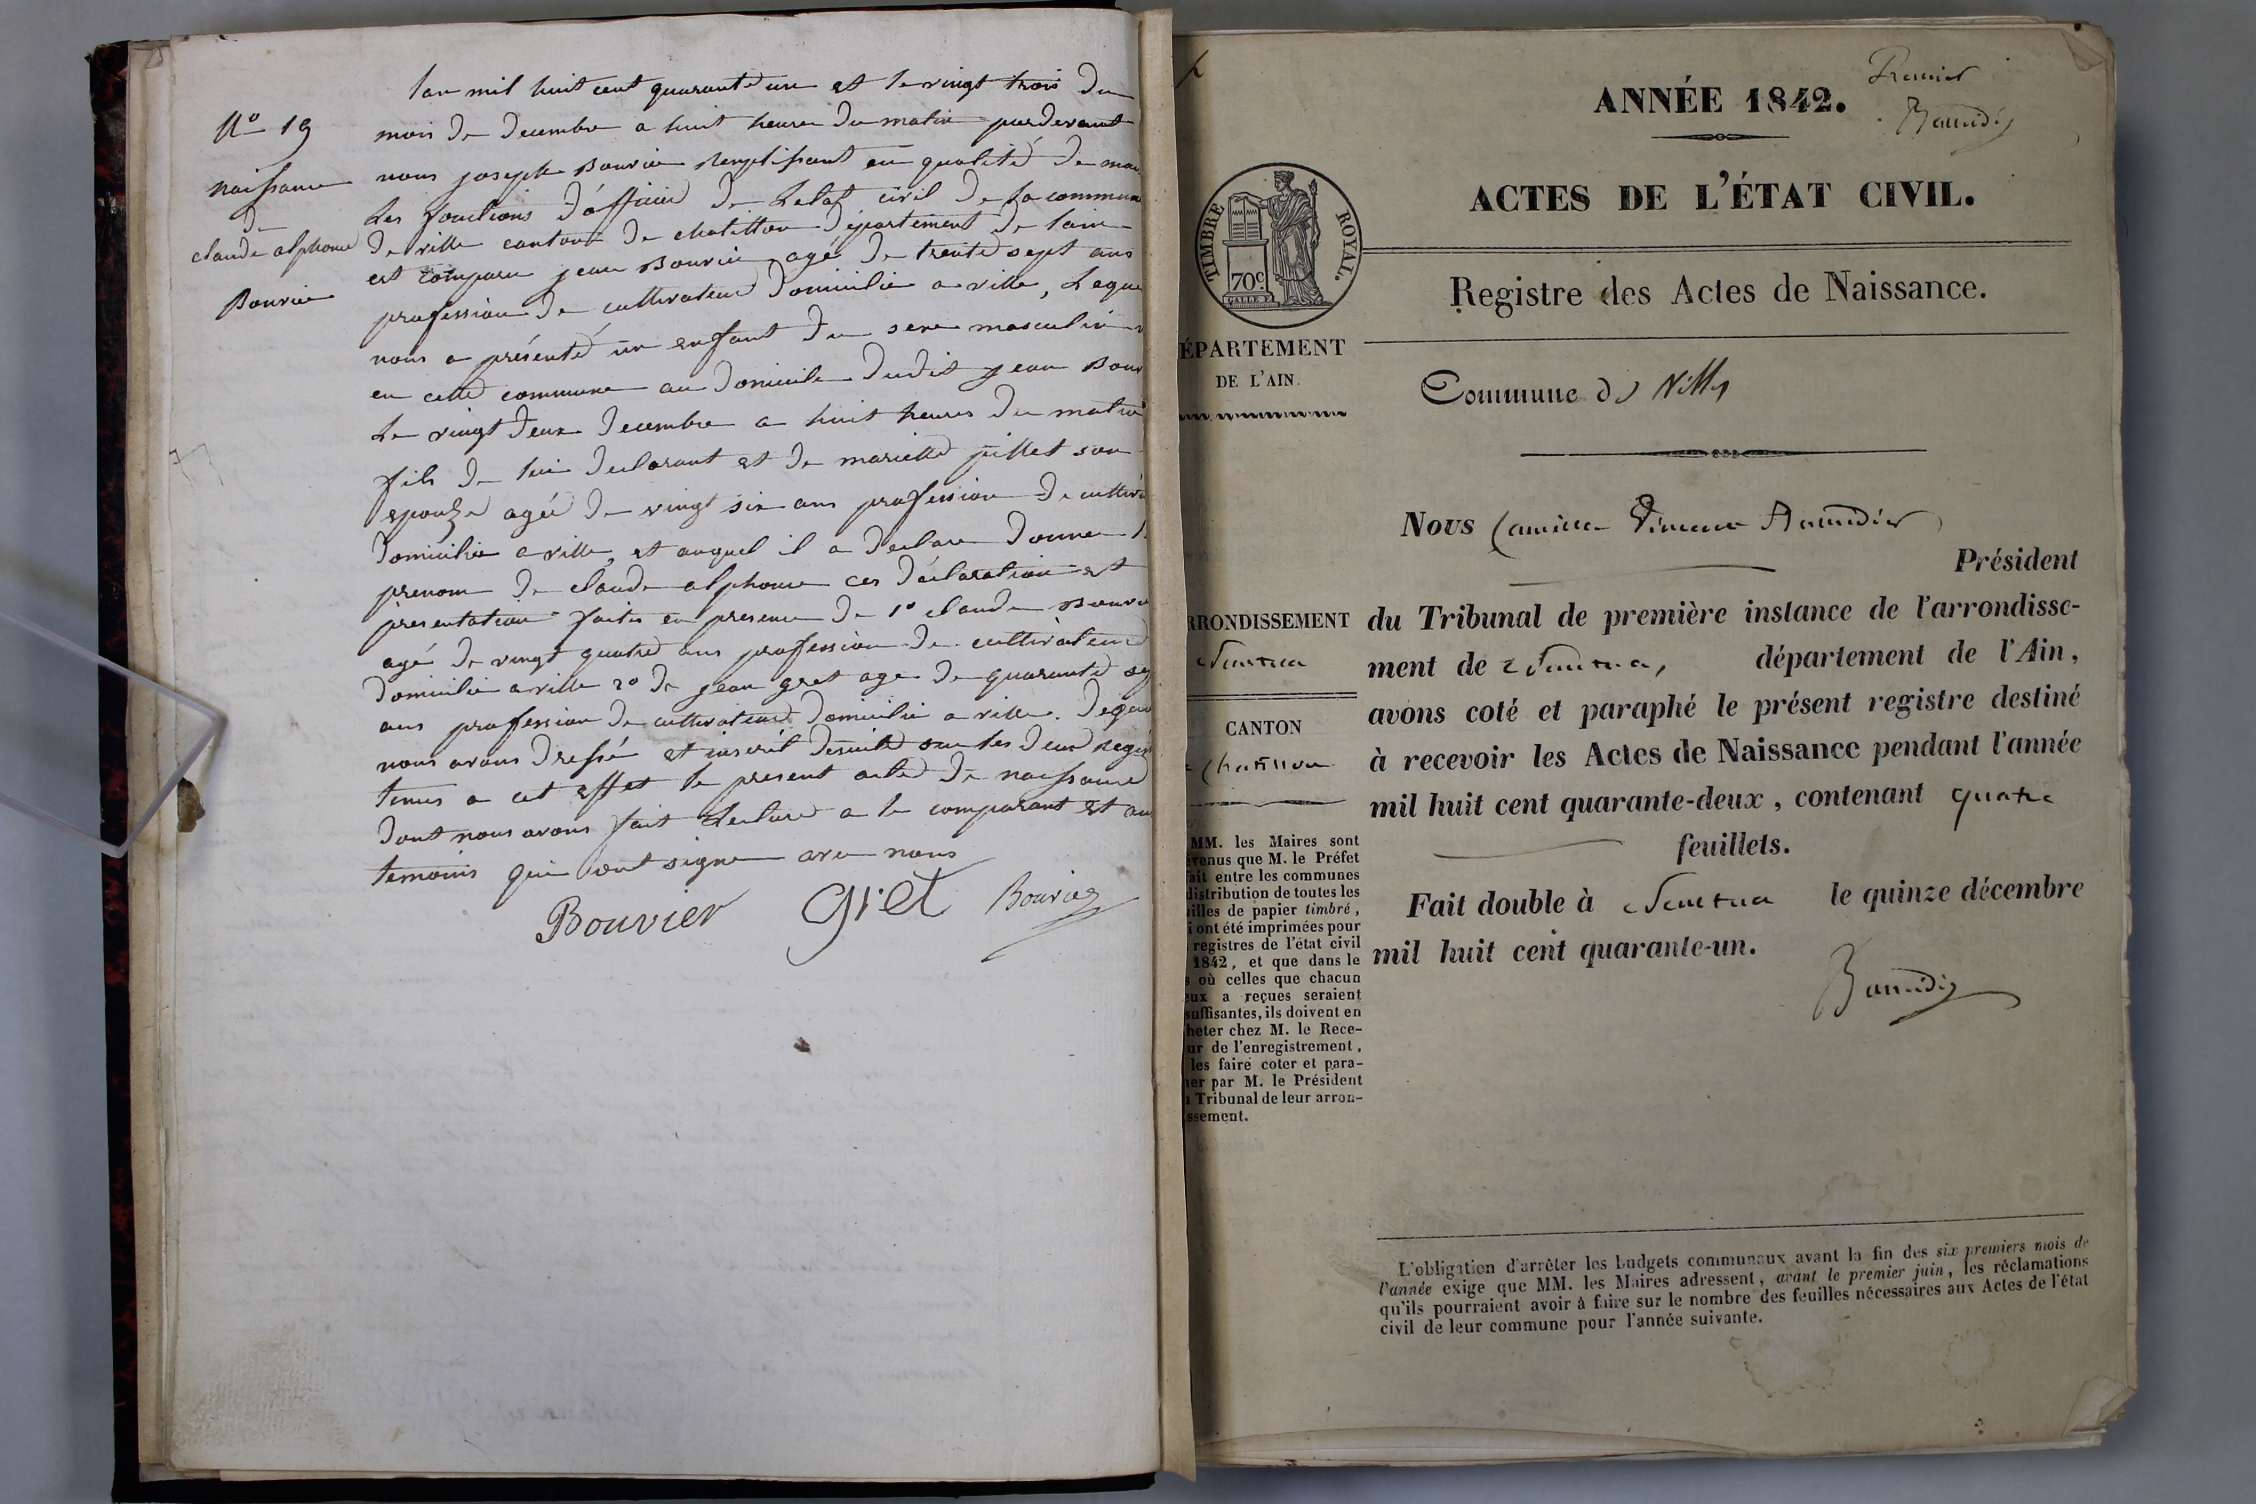 Nº 19
naissance
de
claude alphonse
Bouvier
lan mil huit cent quarante un et le vingt trois du
mois de decembre a huit heures du matin pardevant
nous joseph Bouvier Remplissant en qualité de mai
Les fonctions d'officier de Letat civil de La commune
de ville canton de chatillon département de lain
est comparu jean Bouvier agé de trente sept ans
profession de cultivateur domicilié a ville, Leque
nous a présenté un enfant du sexe masculin
en cette commune au domicile dudit jean Bouv
Le vingt deux decembre a huit heures du matin
fils de lui declarant et de mariette jillet son
epouse agée de vingt six ans profession de cultiva
domicilie a ville, et auquel il a declare donner l
prenom de claude alphonse ces déclaration et
présentation faites en presence de 1º claude Bouvi
agé de vingt quatre ans profession de cultivateur
domicilie a ville 2º de jean gret age de quarante se
ans profession de cultivateur domicilie a ville. de que
nous avons dressé et inscrit desuite sur les deux regis
tenus a cet effet le present acte de naissance
dont nous avons fait Lecture a le comparant et au
temoins qui ont signe avec nous
Bouvier gret Bouvier
Premier
ANNÉE 1842.
ACTES DE L'ÉTAT CIVIL.
TIMBRE ROYAL.
70c.
Registre des Actes de Naissance.
ÉPARTEMENT
DE L'AIN.
Commune de Villes
Nous Camille Vincent
Président
du Tribunal de première instance de l'arrondisse-
ment de Nantua, département de l'Ain,
avons coté et paraphé le présent registre destiné
à recevoir les Actes de Naissance pendant l'année
mil huit cent quarante-deux, contenant quatre
feuillets.
Fait double à Nantua le quinze décembre
mil huit cent quarante-un.
RRONDISSEMENT
Nantua
CANTON
Chatillon
MM. les Maires sont
venus que M. le Préfet
fait entre les communes
distribution de toutes les
uilles de papier timbré,
i ont été imprimées pour
registres de l'état civil
1842, et que dans le
s où celles que chacun
eux a reçues seraient
suffisantes, ils doivent en
heter chez M. le Rece-
ur de l'enregistrement,
les faire coter et para-
her par M. le Président
u Tribunal de leur arron-
ssement.
L'obligation d'arrêter les budgets communaux avant la fin des six premiers mois de
l'année exige que MM. les Maires adressent, avant le premier juin, les réclamations
qu'ils pourraient avoir à faire sur le nombre des feuilles nécessaires aux Actes de l'état
civil de leur commune pour l'année suivante.